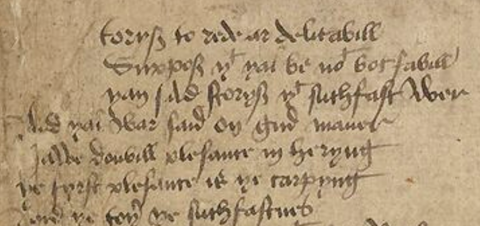 torys to rede ar delitabill
Suppos yt yai be not bot fabill
yan suld storys yt suthfast wer
And yai war said on gud maner
Hawe doubill plesance in heryng
ye fyrst plesance is ye carpyng
And ye toyr ye suthfastnes